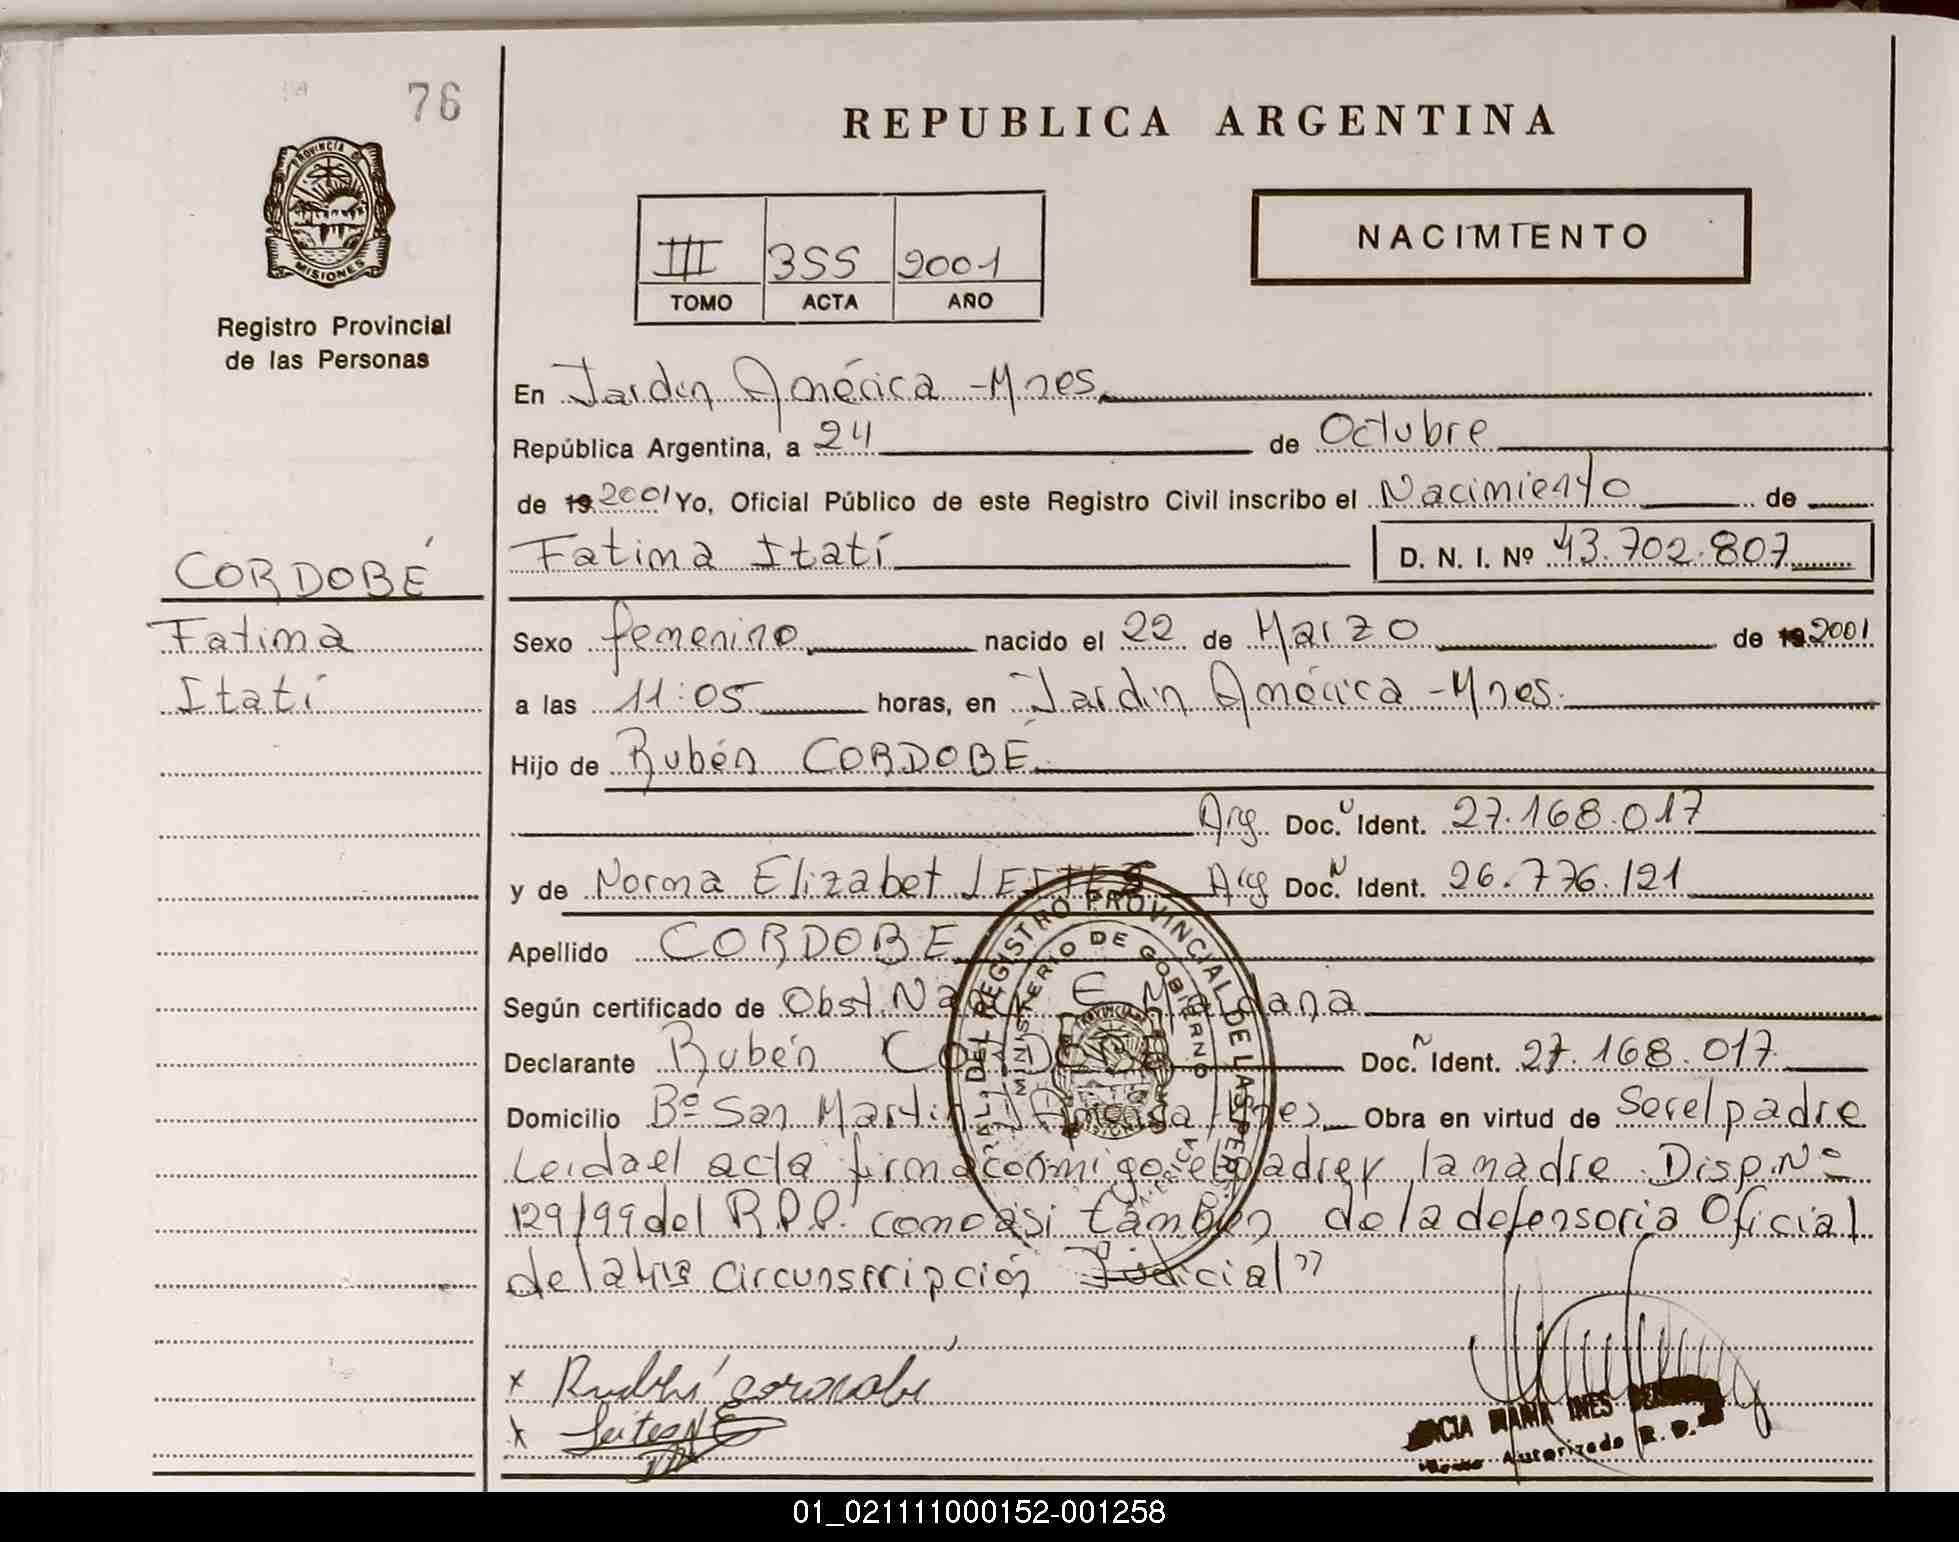 76
REPUBLICA ARGENTINA
PROVINCIA DE
MISIONES
Registro Provincial
de las Personas
III 355 2001
TOMO ACTA AÑO
NACIMIENTO
En Jardin América - Mnes.
República Argentina, a 24 de Octubre
de 19 2001 Yo, Oficial Público de este Registro Civil inscribo el Nacimiento de
CORDOBÉ
Fatima
Itatí
Fatima Itatí D. N. I. Nº 43.702.807
Sexo femenino nacido el 22 de Marzo de 19 2001
a las 11:05 horas, en Jardin América - Mnes.
Hijo de Rubén CORDOBÉ
Arg. Doc. Ident. 27.168.017
y de Norma Elizabet LEITES Arg Doc. N Ident. 26.776.121
Apellido CORDOBE
Según certificado de Obst. E.
Declarante Rubén Doc. N Ident. 27.168.017
Domicilio Bº San Martin J. América Mnes Obra en virtud de Ser el padre
Leida el acta firma conmigo el padre y la madre. Disp. Nº
129/99 del R.P.P. como asi también de la defensoria Oficial
de la 4ta circunscripción Judicial"
DEL REGISTRO PROVINCIAL DE LAS PERS
MINISTERIO DE GOBIERNO
x
x Leites N E
MARIA INES
Autorizado R. P.
01_021111000152-001258